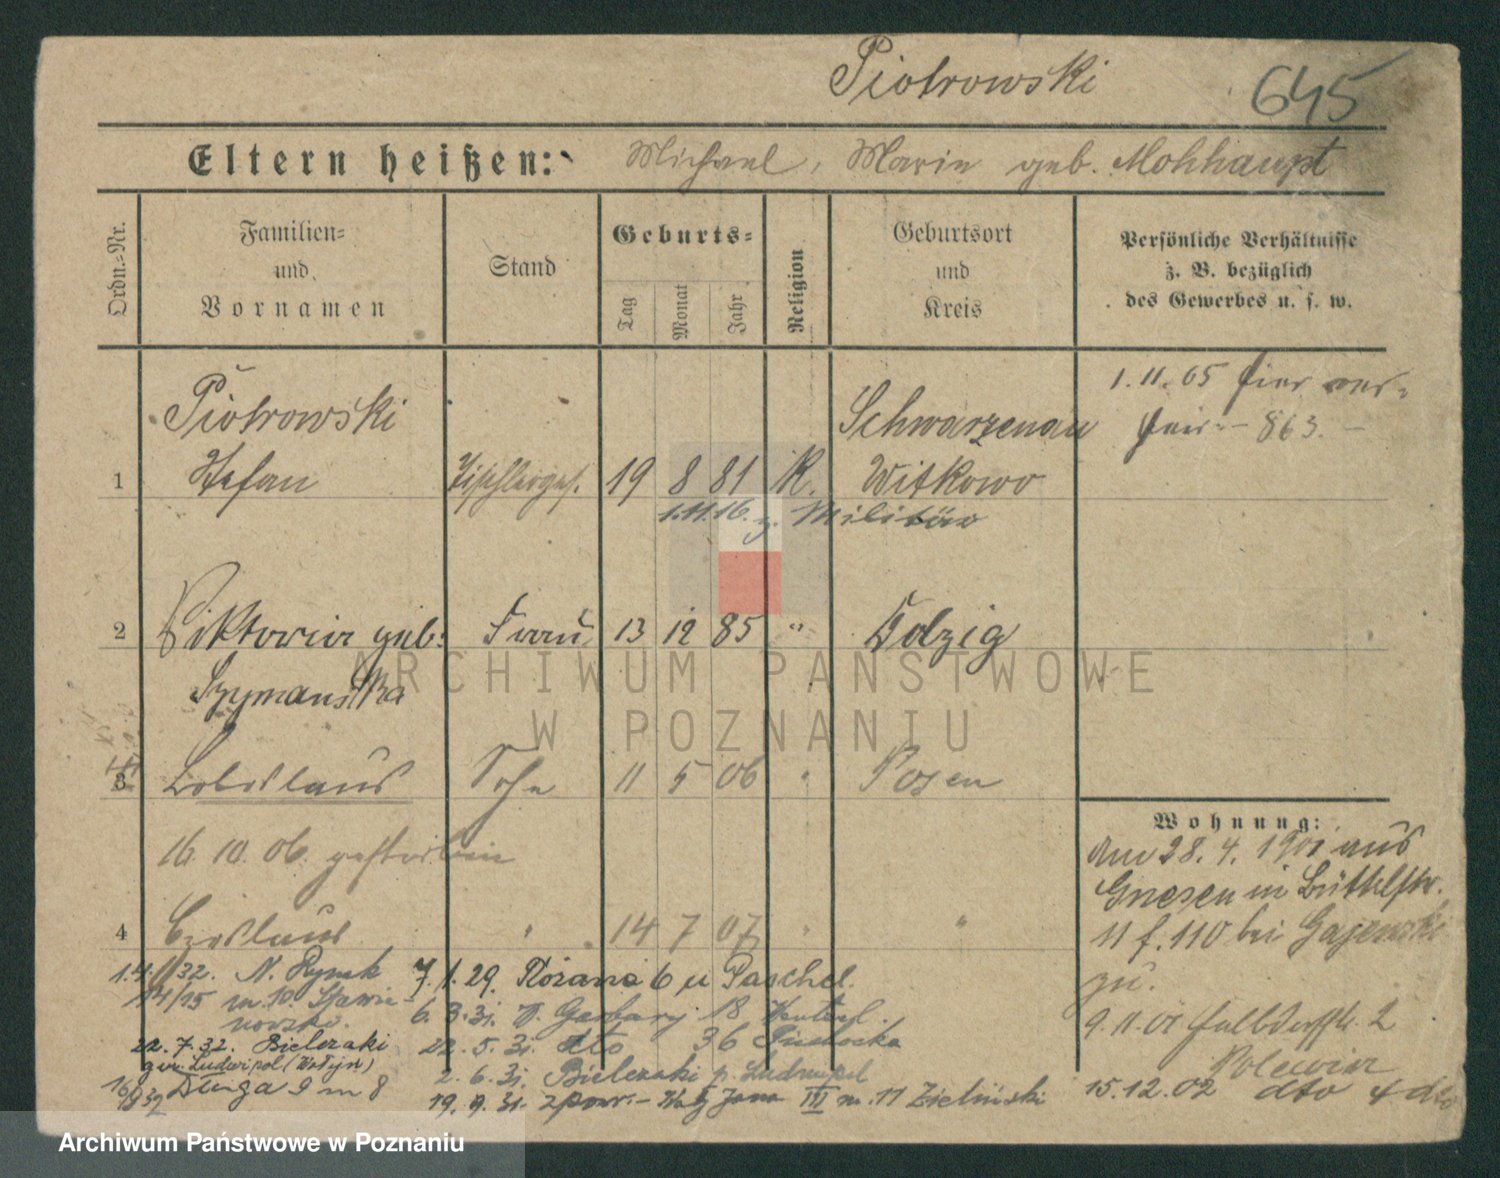 Piotrowski 645
Eltern heißen: Michael, Marie geb. Mohhaupt
Ordn.-Nr.
Familien-
und
Vornamen
Stand
Geburts-
Tag
Monat
Jahr
Religion
Geburtsort
und
Kreis
Persönliche Verhältnisse
z. B. bezüglich
des Gewerbes u. s. w.
1.11.05 hier ver-
heir. - 863. -
Piotrowski Schwarzenau
1 Stefan Tischlerges. 19 8 81 K. Witkowo
1.11.16. z. Militär
2 Viktoria geb. Frau 13 12 85 " Dolzig
Szymanska
3 Boleslaus Sohn 11 5 06 " Posen
16. 10. 06. gestorben
4 Ceslaus " 14 7 07 " "
Wohnung:
Am 28. 4. 1901 aus
Gnesen in Büttelstr.
11 f. 110 bei Gajewski
zu.
9.11.01 Halbdorfstr. 2
15.12.02 dto 4 dto
1.4.32. N. Rynek
14/15 m 10.
22.7.32. Bielczaki
gm. Ludwipol (Wołyń)
Długa 9 m 8
7.1.29. Różana 6 u Paschel.
6.3.31. W. Garbary 18
22.5.31. dto 36
2.6.31. Bielczaki p. Ludwipol
19.9.31. z pow. - Jana III m. 11 Zieliński
ARCHIWUM PAŃSTWOWE
W POZNANIU
Archiwum Państwowe w Poznaniu